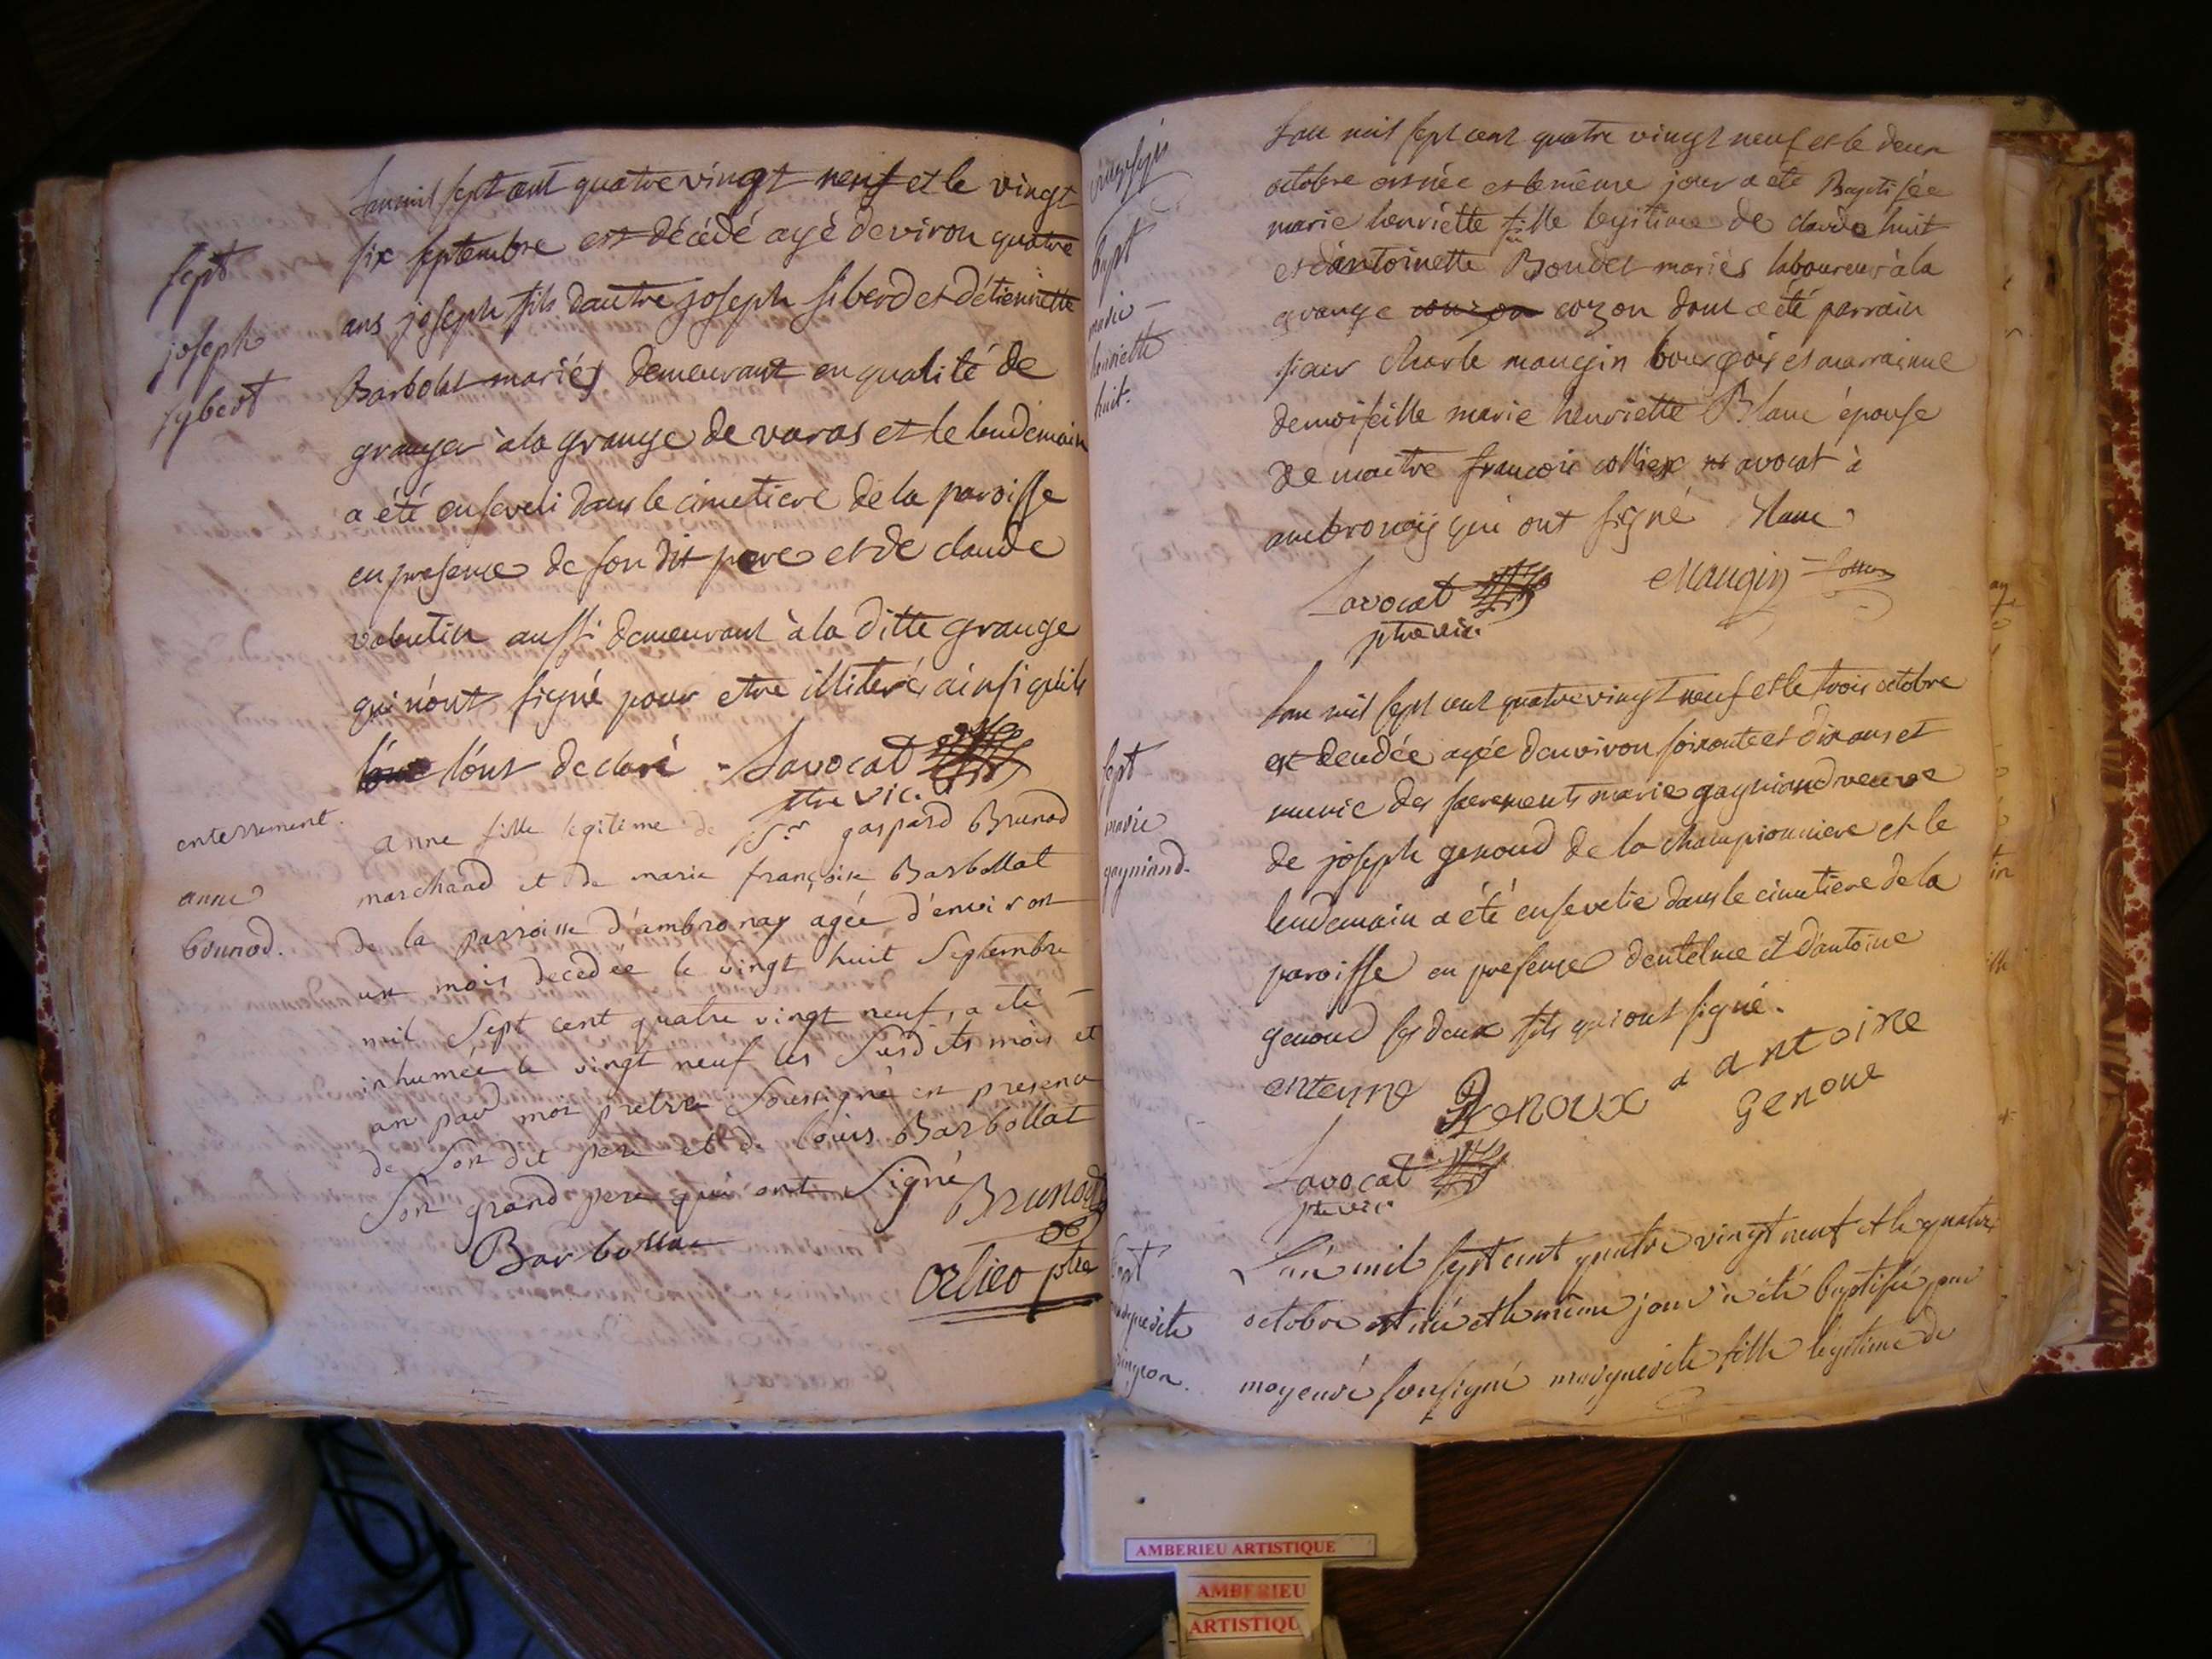 sept
joseph
sybert
Lan mil sept cent quatre vingt neuf et le vingt
six septembre est décédé agé deviron quatre
ans joseph fils dautre joseph siberd et détiennette
Barbolat mariés demeurant en qualité de
granger à la grange de varas et le lendemain
a été enseveli dans le cimetiere de la paroisse
en presence de son dit pere et de claude
valentin aussi demeurant à la ditte grange
qui n'ont signé pour etre illiterés ainsi quils
l'ont declaré - Lavocat
ptre vic.
enterrement.
anne
brunod.
anne fille legitime de Sr gaspard Brunod
marchand et de marie françoise Barbollat
de la parroisse d'ambronay agée d'environ
un mois decedée le vingt huit Septembre
mil Sept cent quatre vingt neuf, a été -
inhumée le vingt neuf les Susdits mois et
an par moi pretre Soussigné en presence
de Son dit pere et de louis Barbollat
Son grand pere qui ont Signé
Brunod
Barbollat
orlieo ptre
bapt
marie -
henriette
huit.
Lan mil sept cent quatre vingt neuf et le deux
octobre est née et le même jour a été Baptisée
marie henriette fille legitime de claude huit
et d'antoinette Boudet mariés laboureur à la
grange cozon dont a été parrain
sieur charle maugin bourgois et marrainne
demoiseille marie henriette Blanc épouse
de maitre francois colliex avocat à
ambronaÿ qui ont signé Blanc
Lavocat Maugin
ptre vic.
sept
marie
gagniand.
Lan mil sept cent quatre vingt neuf et le trois octobre
est decedée agée denviron soixante et dix ans et
munie des sacrements marie gagniand veuve
de joseph genoud de la championniere et le
lendemain a été ensevelie dans le cimetiere de la
paroisse en presence dentelme et d'antoine
genoud ses deux fils qui ont signé.
entenne Renoux a antoine
genoue
Lavocat
ptre vic.
bapt
marguerite
L'an mil sept cent quatre vingt neuf et le quatre
octobre est née et le même jour a été baptisée par
moy curé sousigné marguerite fille legitime de
AMBERIEU ARTISTIQUE
AMBERIEU
ARTISTIQU